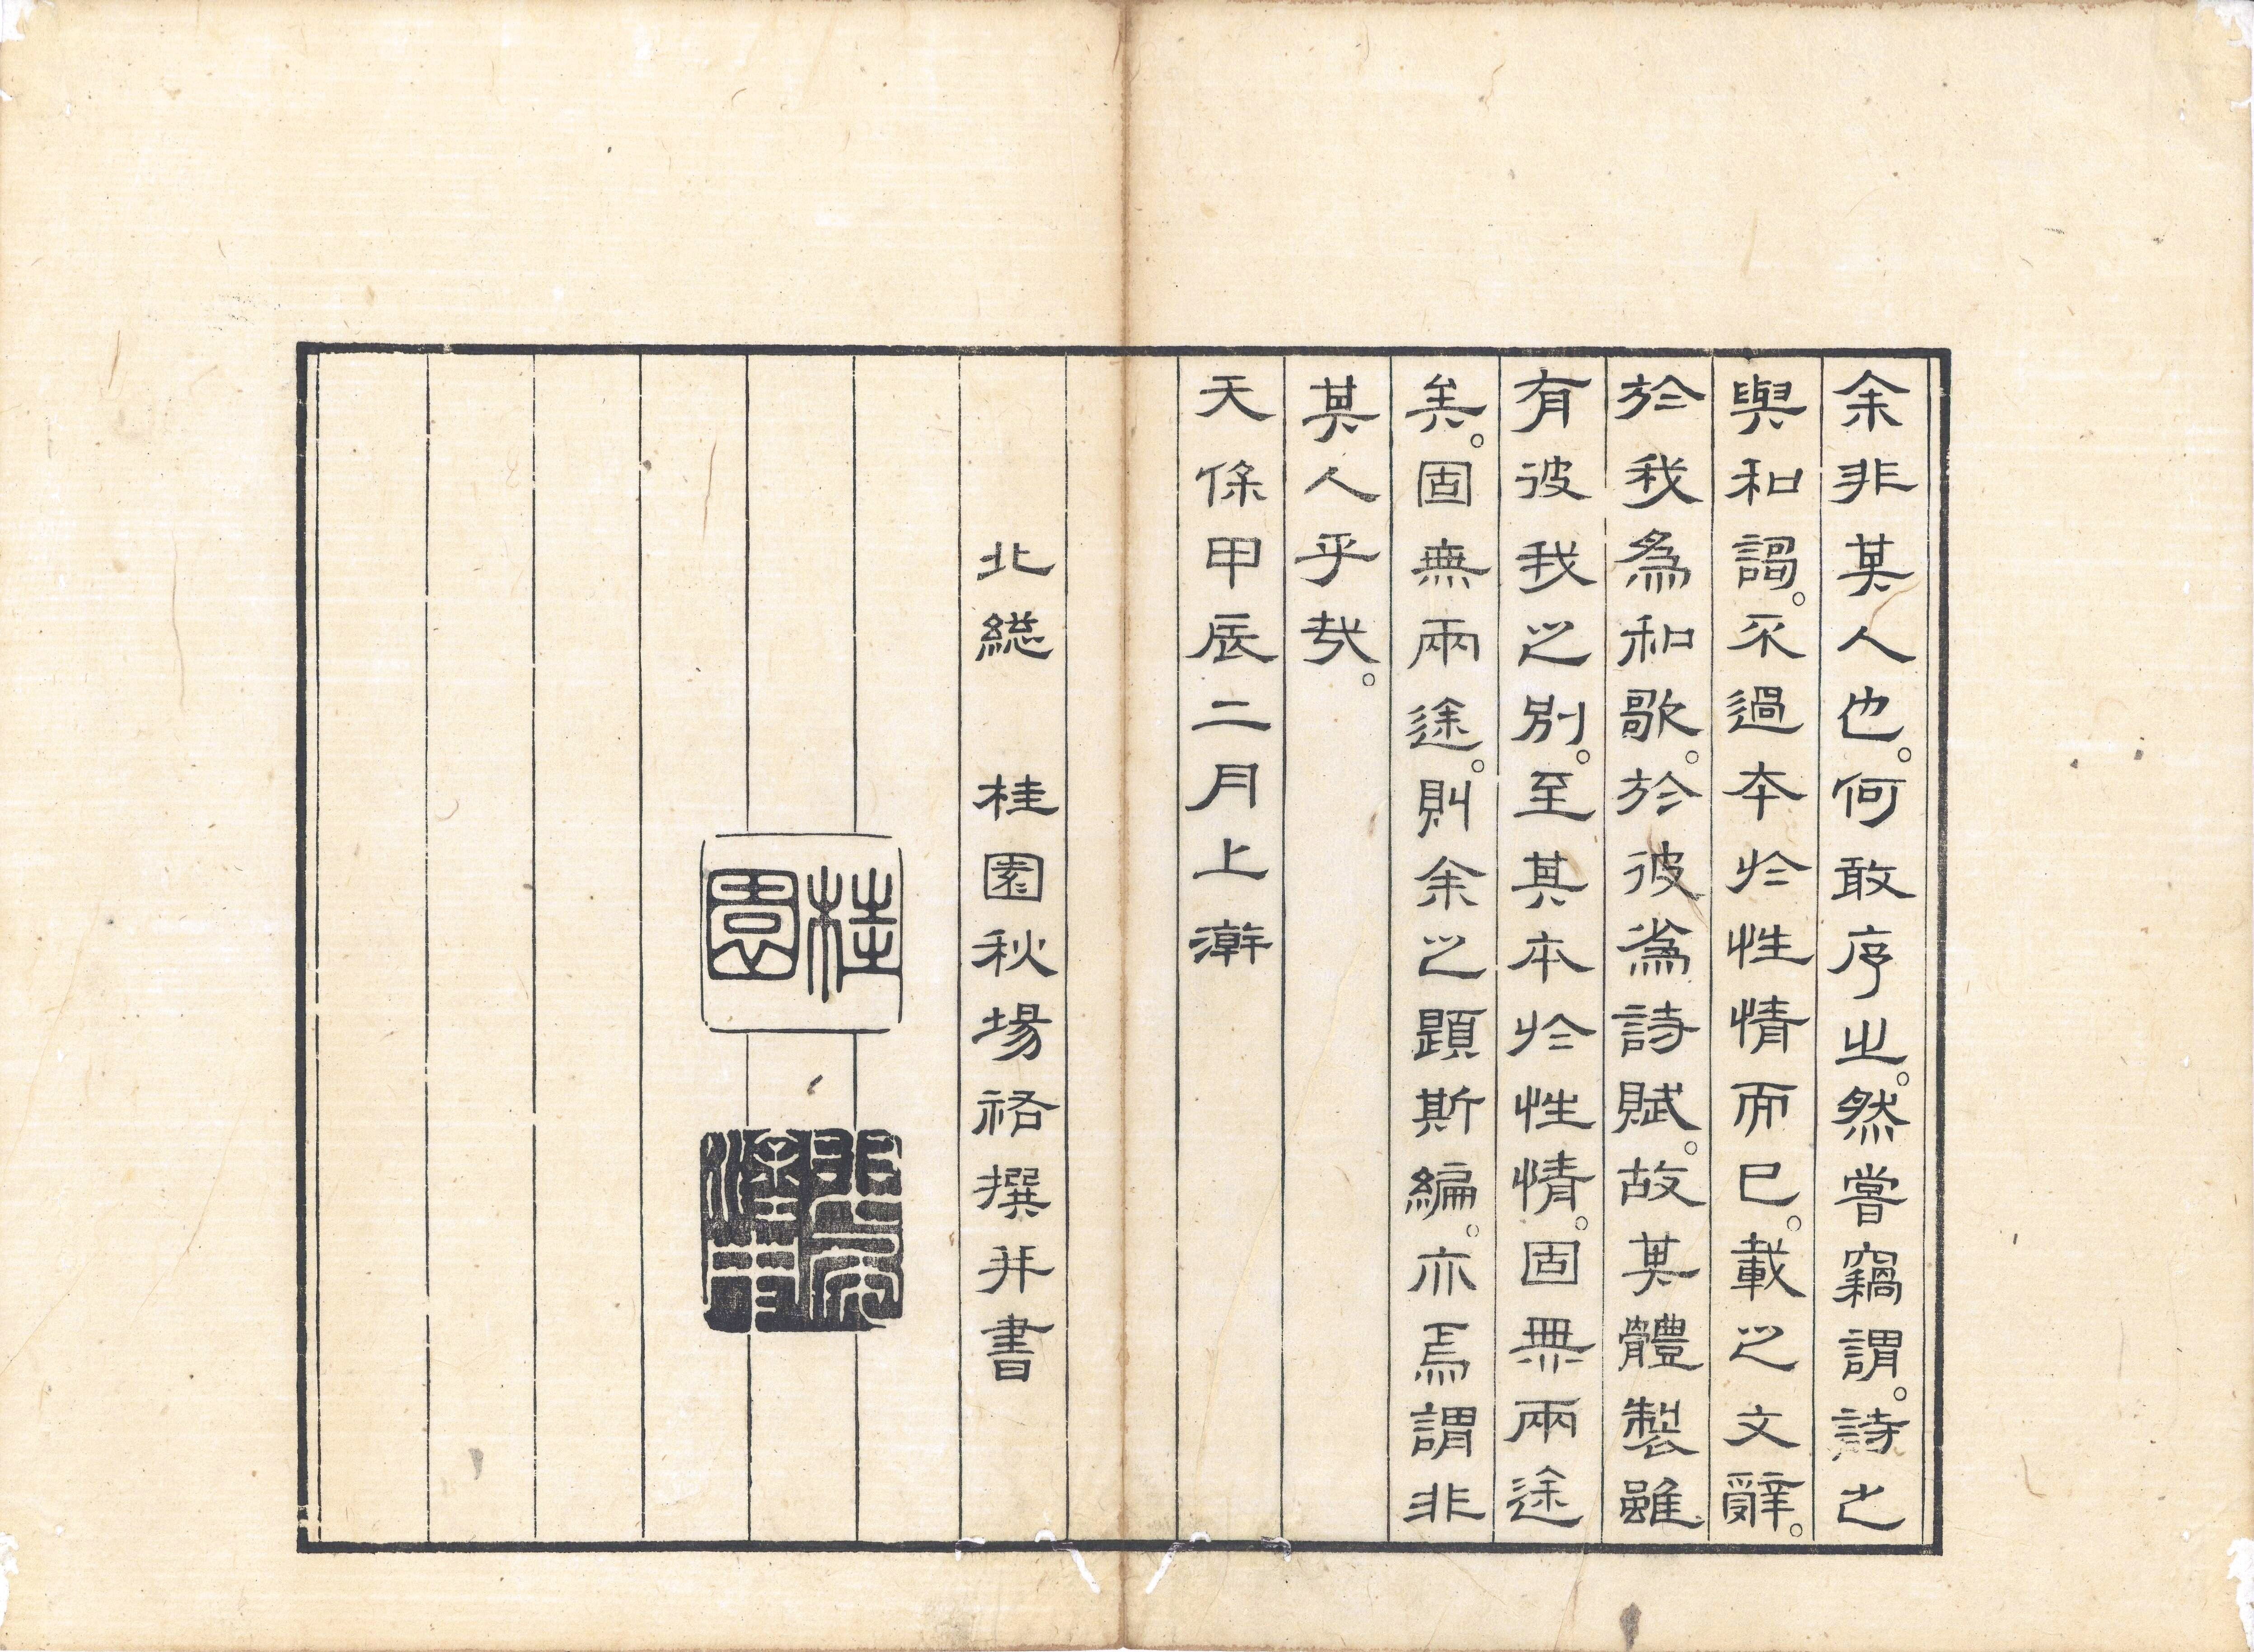 余非其人也。何敢序之。然嘗竊謂。詩之
與和謌。不過本於性情而已。載之文辭。
於我爲和歌。於彼爲詩賦。故其體製雖
有彼我之別。至其本於性情。固無兩途
矣。固無兩途。則余之題斯編。亦焉謂非
其人乎哉。
天保甲辰二月上澣
北総 桂園秋場祐撰并書
桂園